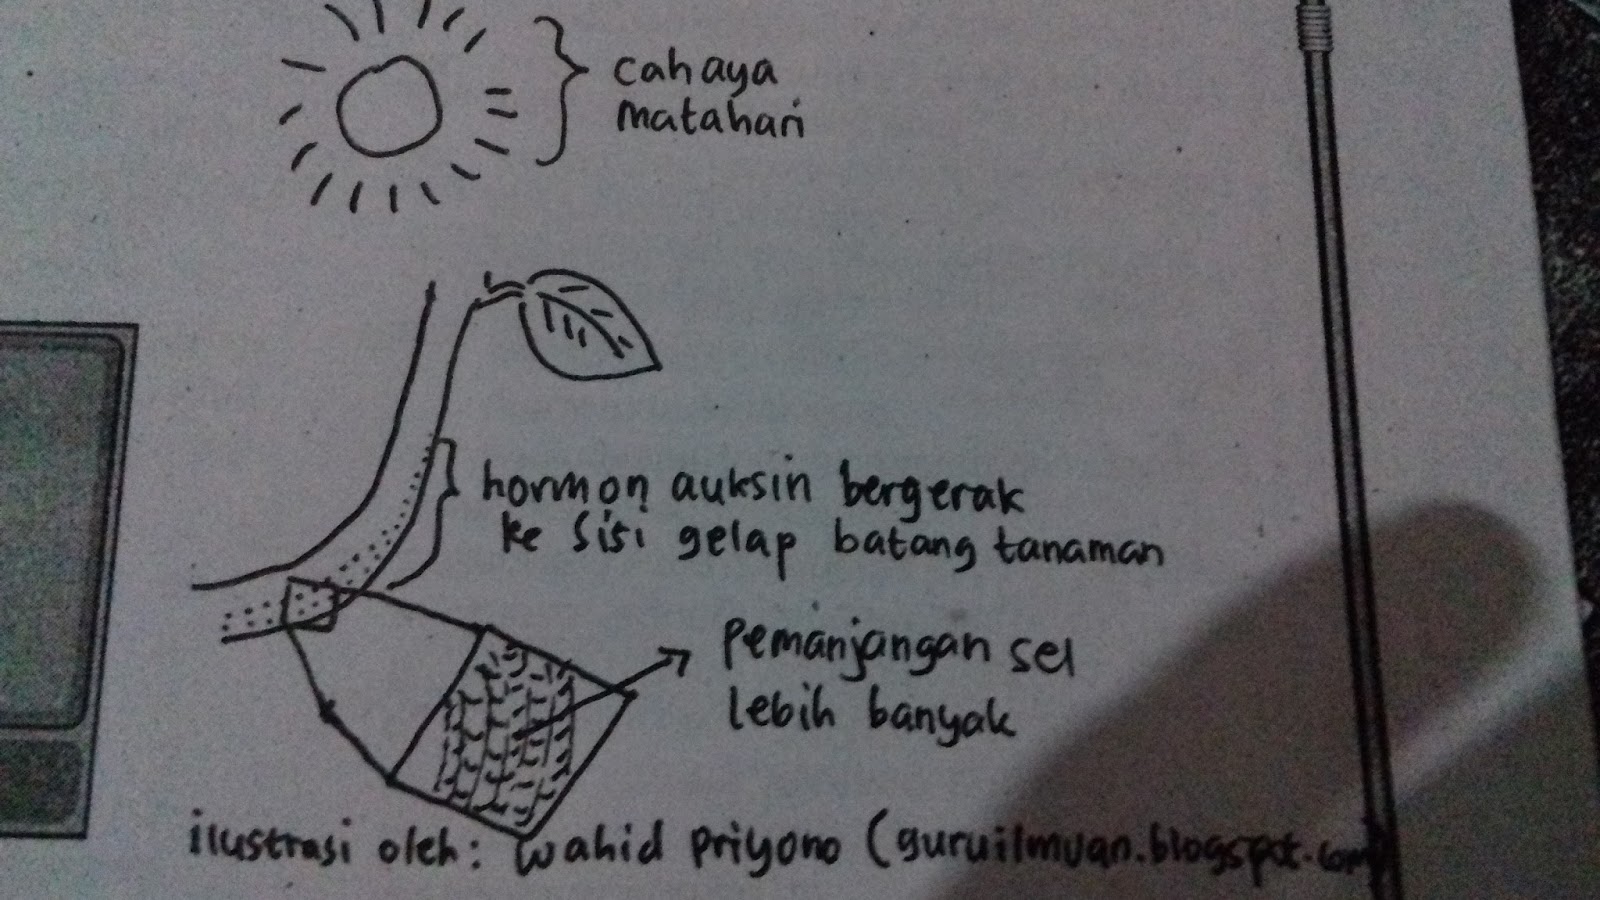 cahaya
matahari
hormon auksin bergerak
ke sisi gelap batang tanaman
pemanjangan sel
lebih banyak
ilustrasi oleh: wahid priyono (guruilmuan.blogspot.com)